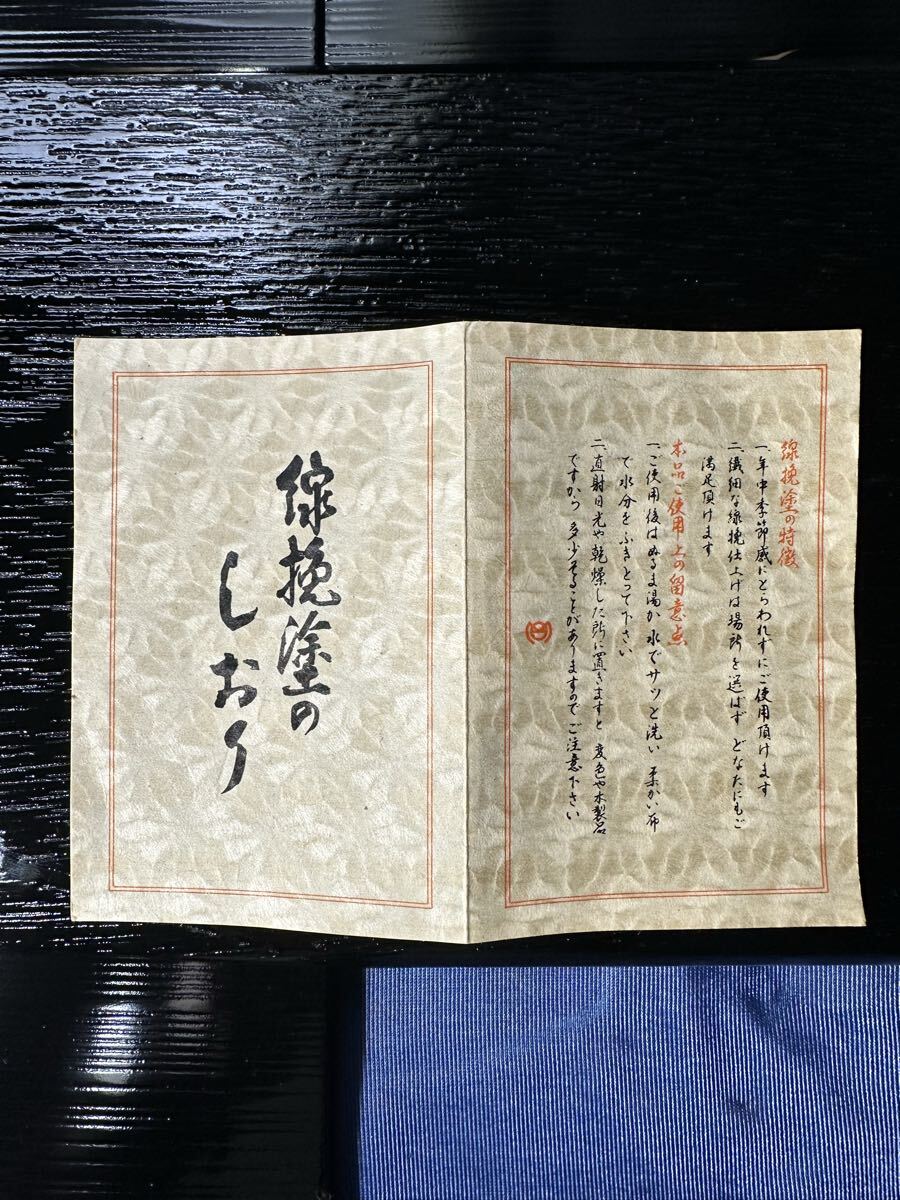 線挽塗の特徴
一、年中季節感にとらわれずにご使用頂けます
二、繊細な線挽仕上げは場所を選ばず どなたにもご
満足頂けます
本品ご使用上の留意点
一、ご使用後はぬるま湯か 水でサッと洗い 柔かい布
で水分を ふきとって下さい
二、直射日光や乾燥した所に置きますと 変色や木製品
ですから 多少そることがありますので ご注意下さい
線挽塗の
しおり